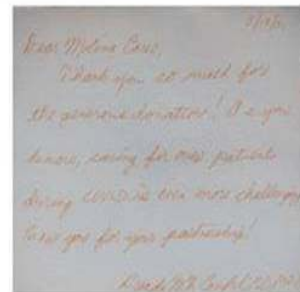 Dear Molina Cares,
Thank you so much for
the generous donation! As you
know, caring for our patients
during COVID is even more challenging
Thank you for your partnership!